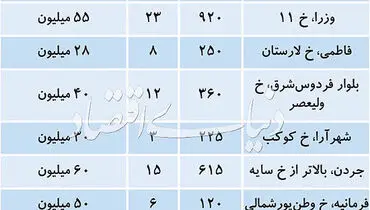 وزرا، خ ۱۱ ۹۲۰ ۲۳ ۵۵ میلیون
فاطمی، خ لارستان ۲۵۰ ۸ ۲۸ میلیون
بلوار فردوس‌شرق، خ
ولیعصر ۳۶۰ ۱۲ ۴۰ میلیون
شهرآرا، خ کوکب ۲۲۵ ۲ ۳۰ میلیون
جردن، بالاتر از خ سایه ۶۱۵ ۱۵ ۶۰ میلیون
فرمانیه، خ وطن‌پورشمالی ۱۲۰ ۶ ۵۰ میلیون
دنیای اقتصاد